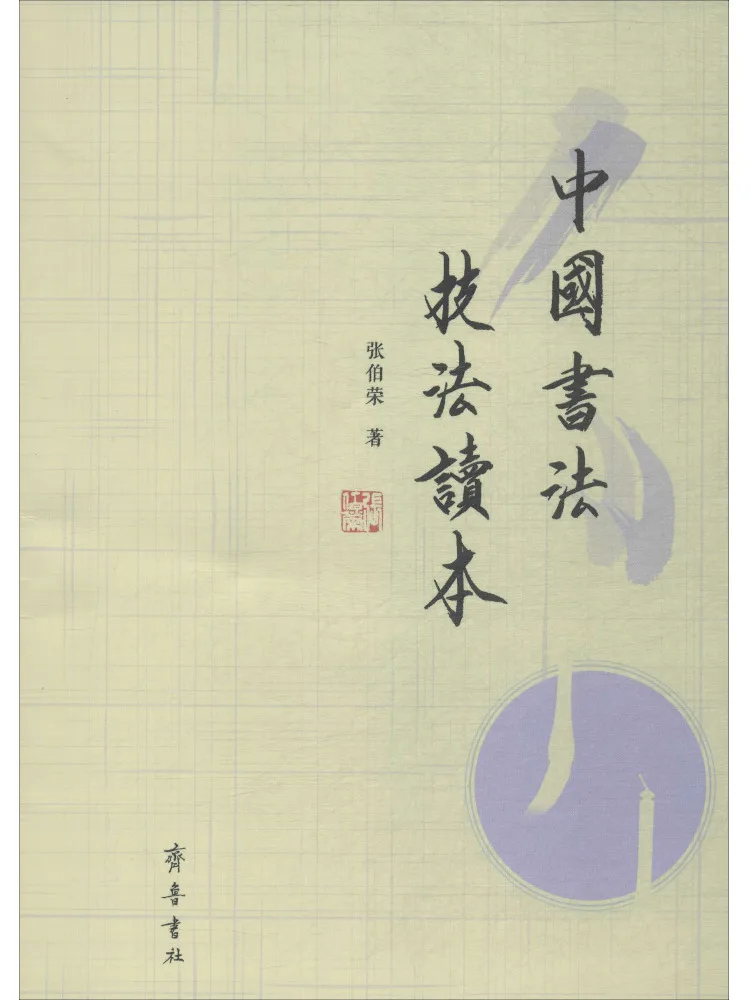 中國書法
技法讀本
张伯荣 著
齊魯書社